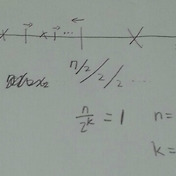 n/2/2/2 ...
n/2^k = 1 n=
k=